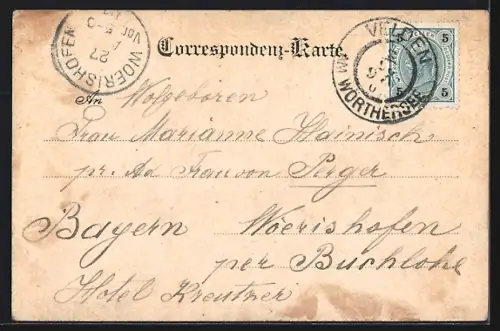 WOERISHOFEN
27
Correspondenz-Karte.
VELDEN
AM WÖRTHERSEE
5 5
5 5
An Wolgeboren
Frau Marianne Hainisch
pr. Ad Frau von Perger
Bayern Wöerishofen
per Buchlohe
Hotel Kreutzer